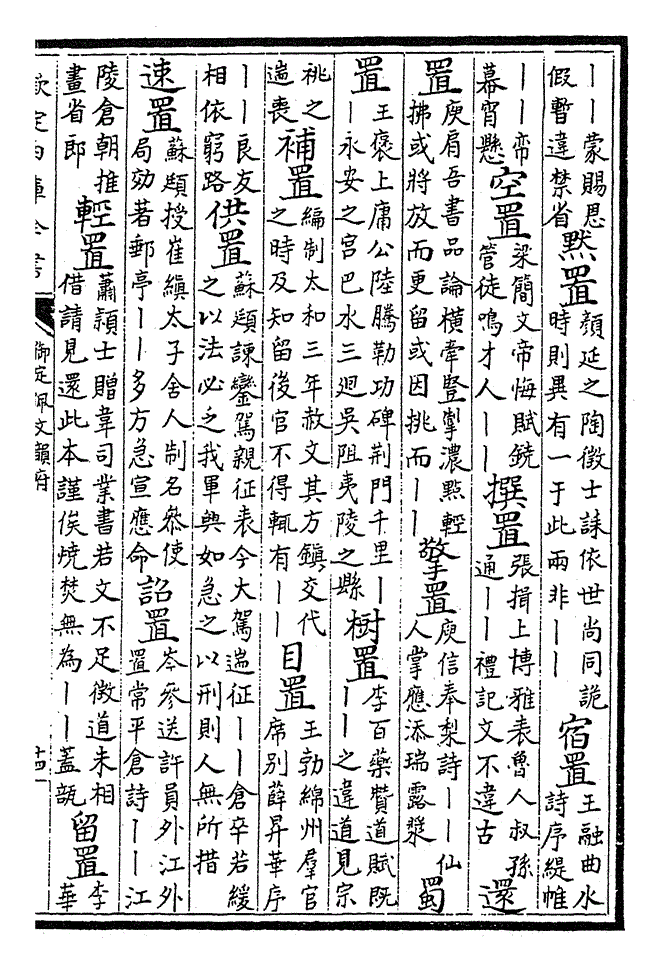 ——蒙賜恩假暫違禁省 黙置 顔延之陶徵士誄依世尚同詭時則異有一于此兩非—— 宿置 王融曲水詩序緹帷
——帟幕宵懸 空置 梁簡文帝悔賦鐃管徒鳴才人—— 撰置 張揖上博雅表魯人叔孫通——禮記文不違古 還
置 庾肩吾書品論橫牽豎掣濃點輕拂或將放而更留或因挑而—— 擎置 庾信奉梨詩——仙人掌應添瑞露漿 蜀
置 王褒上庸公陸騰勒功碑荆門千里——永安之宫巴水三廻吳阻夷陵之縣 樹置 李百藥贊道賦既——之違道見宗
祧之遄喪 補置 編制太和三年赦文其方鎮交代之時及知留後官不得輒有—— 目置 王勃綿州羣官席别薛昇華序
——良友相依窮路 供置 蘇頲諫鑾駕親征表今大駕遄征——倉卒若緩之以法必乏我軍興如急之以刑則人無所措
速置 蘇頲授崔縝太子舍人制名叅使局効著郵亭——多方急宣應命 詔置 岑參送許員外江外置常平倉詩——江
陵倉朝推畫省郎 輕置 蕭頴士贈韋司業書若文不足徵道未相借請見還此本謹俟燒焚無為——蓋瓿 留置 李華
欽定四庫全書 御定佩文韻府